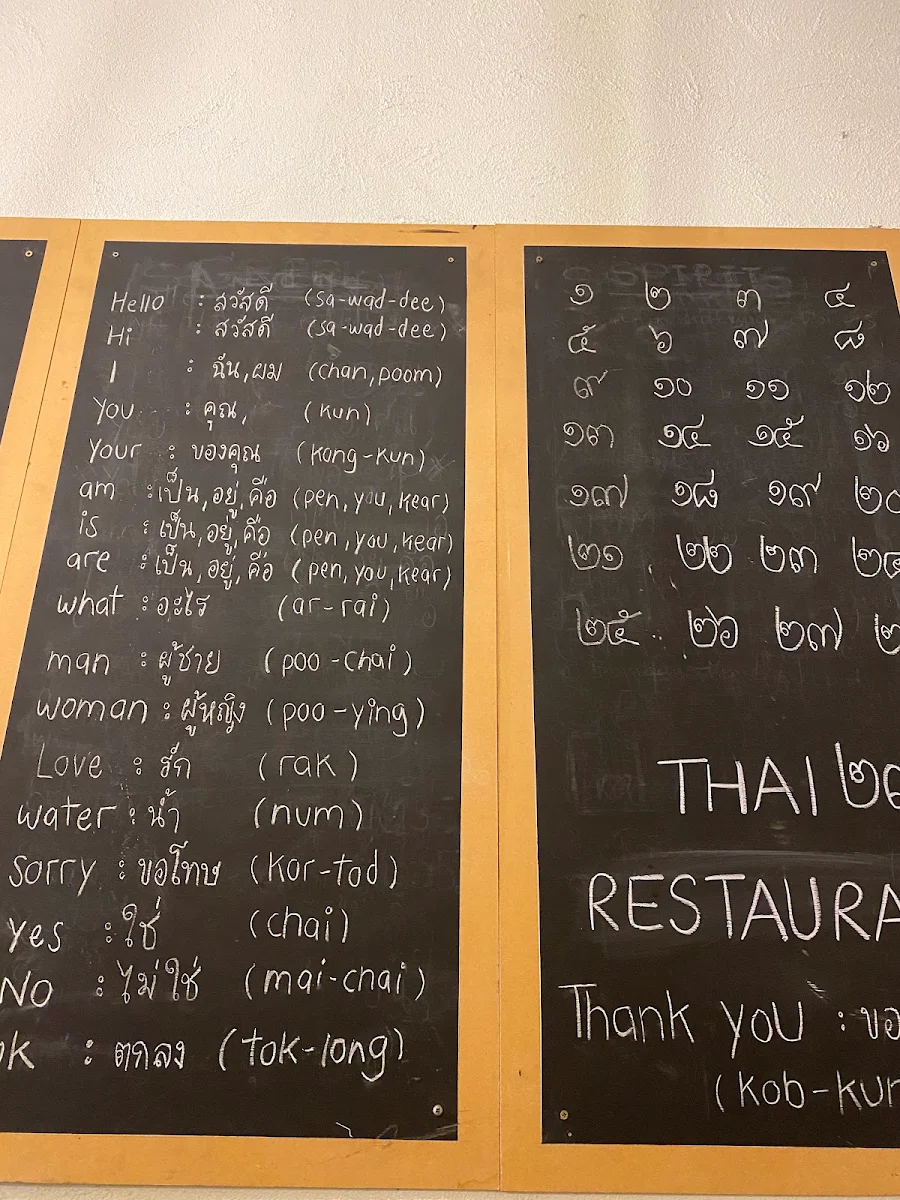 Hello : สวัสดี (sa-wad-dee)
Hi : สวัสดี (sa-wad-dee)
I : ฉัน,ผม (chan,poom)
you : คุณ, (kun)
your : ของคุณ (kong-kun)
am : เป็น,อยู่,คือ (pen,you,kear)
is : เป็น,อยู่,คือ (pen,you,kear)
are : เป็น,อยู่,คือ (pen,you,kear)
what : อะไร (ar-rai)
man : ผู้ชาย (poo-chai)
woman : ผู้หญิง (poo-ying)
Love : รัก (rak)
water : น้ำ (num)
sorry : ขอโทษ (kor-tod)
yes : ใช่ (chai)
No : ไม่ใช่ (mai-chai)
ok : ตกลง (tok-long)
๑ ๒ ๓ ๔
๕ ๖ ๗ ๘
๙ ๑๐ ๑๑ ๑๒
๑๓ ๑๔ ๑๕ ๑๖
๑๗ ๑๘ ๑๙ ๒๐
๒๑ ๒๒ ๒๓ ๒๔
๒๕ ๒๖ ๒๗ ๒
THAI ๒
RESTAURA
Thank you : ขอ
(kob-kun